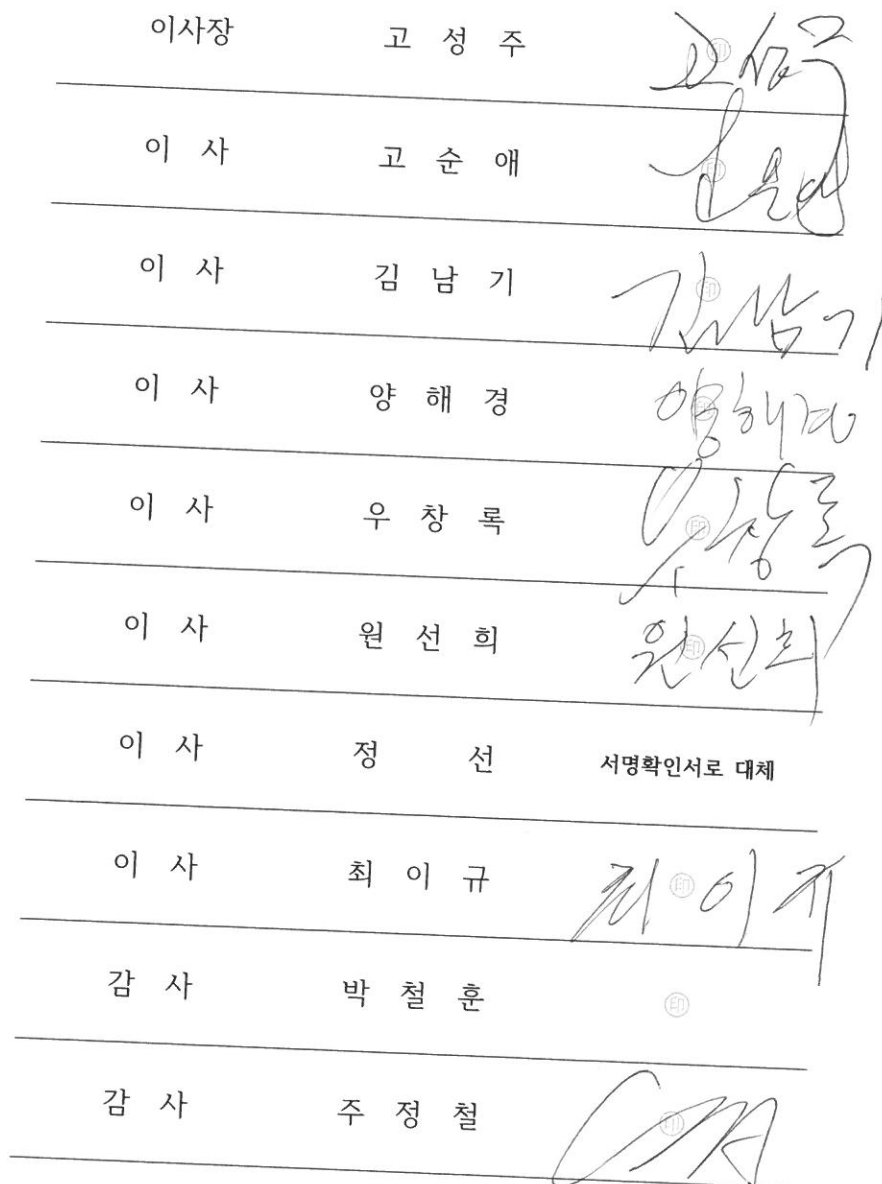 이사장 고 성 주 ㊞ 고성주
이 사 고 순 애 ㊞
이 사 김 남 기 ㊞ 김남기
이 사 양 해 경 ㊞ 양해경
이 사 우 창 록 ㊞ 우창록
이 사 원 선 희 ㊞ 원선희
이 사 정 선 서명확인서로 대체
이 사 최 이 규 ㊞ 최이규
감 사 박 철 훈 ㊞
감 사 주 정 철 ㊞